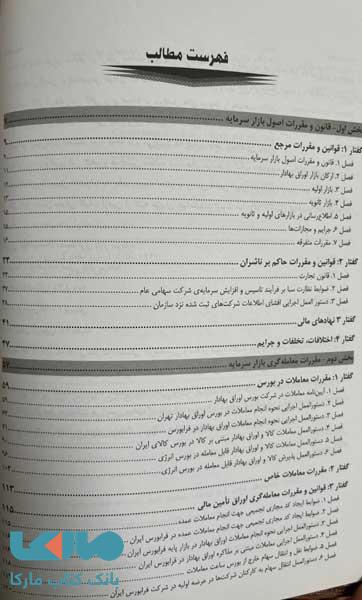 فهرست مطالب
بخش اول- قانون و مقررات اصول بازار سرمایه
گفتار ۱: قوانین و مقررات مرجع ۹
فصل ۱. قانون و مقررات اصول بازار سرمایه
فصل ۲. ارکان بازار اوراق بهادار ۱۱
فصل ۳. بازار اولیه ۱۲
فصل ۴. بازار ثانویه
فصل ۵. اطلاع‌رسانی در بازارهای اولیه و ثانویه ۱۵
فصل ۶. جرایم و مجازات‌ها ۱۵
فصل ۷. مقررات متفرقه ۱۶
گفتار ۲: قوانین و مقررات حاکم بر ناشران ۲۳
فصل ۱. قانون تجارت
فصل ۲. ضوابط نظارت سبا بر فرآیند تاسیس و افزایش سرمایه‌ی شرکت سهامی عام
فصل ۳. دستور العمل اجرایی افشای اطلاعات شرکت‌های ثبت شده نزد سازمان
گفتار ۳ نهادهای مالی ۴۱
گفتار ۴: اختلافات، تخلفات و جرایم ۴۷
بخش دوم- مقررات معامله‌گری بازار سرمایه ۵۷
گفتار ۱: مقررات معاملات در بورس ۵۹
فصل ۱. آیین‌نامه معاملات در شرکت بورس اوراق بهادار
فصل ۲. دستورالعمل اجرایی نحوه انجام معاملات در بورس اوراق بهادار تهران
فصل ۳. دستورالعمل اجرایی نحوه انجام معاملات در فرابورس
فصل ۴. دستورالعمل معاملات کالا و اوراق بهادار مبتنی بر کالا در بورس کالای ایران
فصل ۵. دستورالعمل معاملات کالا و اوراق بهادار قابل معامله در بورس انرژی
فصل ۶. دستورالعمل پذیرش کالا و اوراق بهادار قابل معامله در بورس انرژی
گفتار ۲: مقررات معاملات خاص ۱۱۳
گفتار ۳: قوانین و مقررات معامله‌گری اوراق تأمین مالی ۱۱۵
فصل ۱. ضوابط ایجاد کد مجازی تجمیعی جهت انجام معاملات عمده
فصل ۲. ضوابط ایجاد کد مجازی تجمیعی جهت انجام معاملات عمده در فرابورس ایران
فصل ۳. دستورالعمل اجرایی نحوه انجام معاملات اوراق بهادار در بازار پایه فرابورس ایران
فصل ۴. دستورالعمل اجرایی معاملات مبتنی بر مذاکره اوراق بهادار در فرابورس ایران
فصل ۵. ضوابط نقل و انتقال سهام خارج از بورس ساعت معاملات
فصل ۶. دستورالعمل انتقال سهام به کارکنان شرکت‌ها در عرضه اولیه در شرکت فرابورس ایران
مارکا
بانک کتاب مارکا